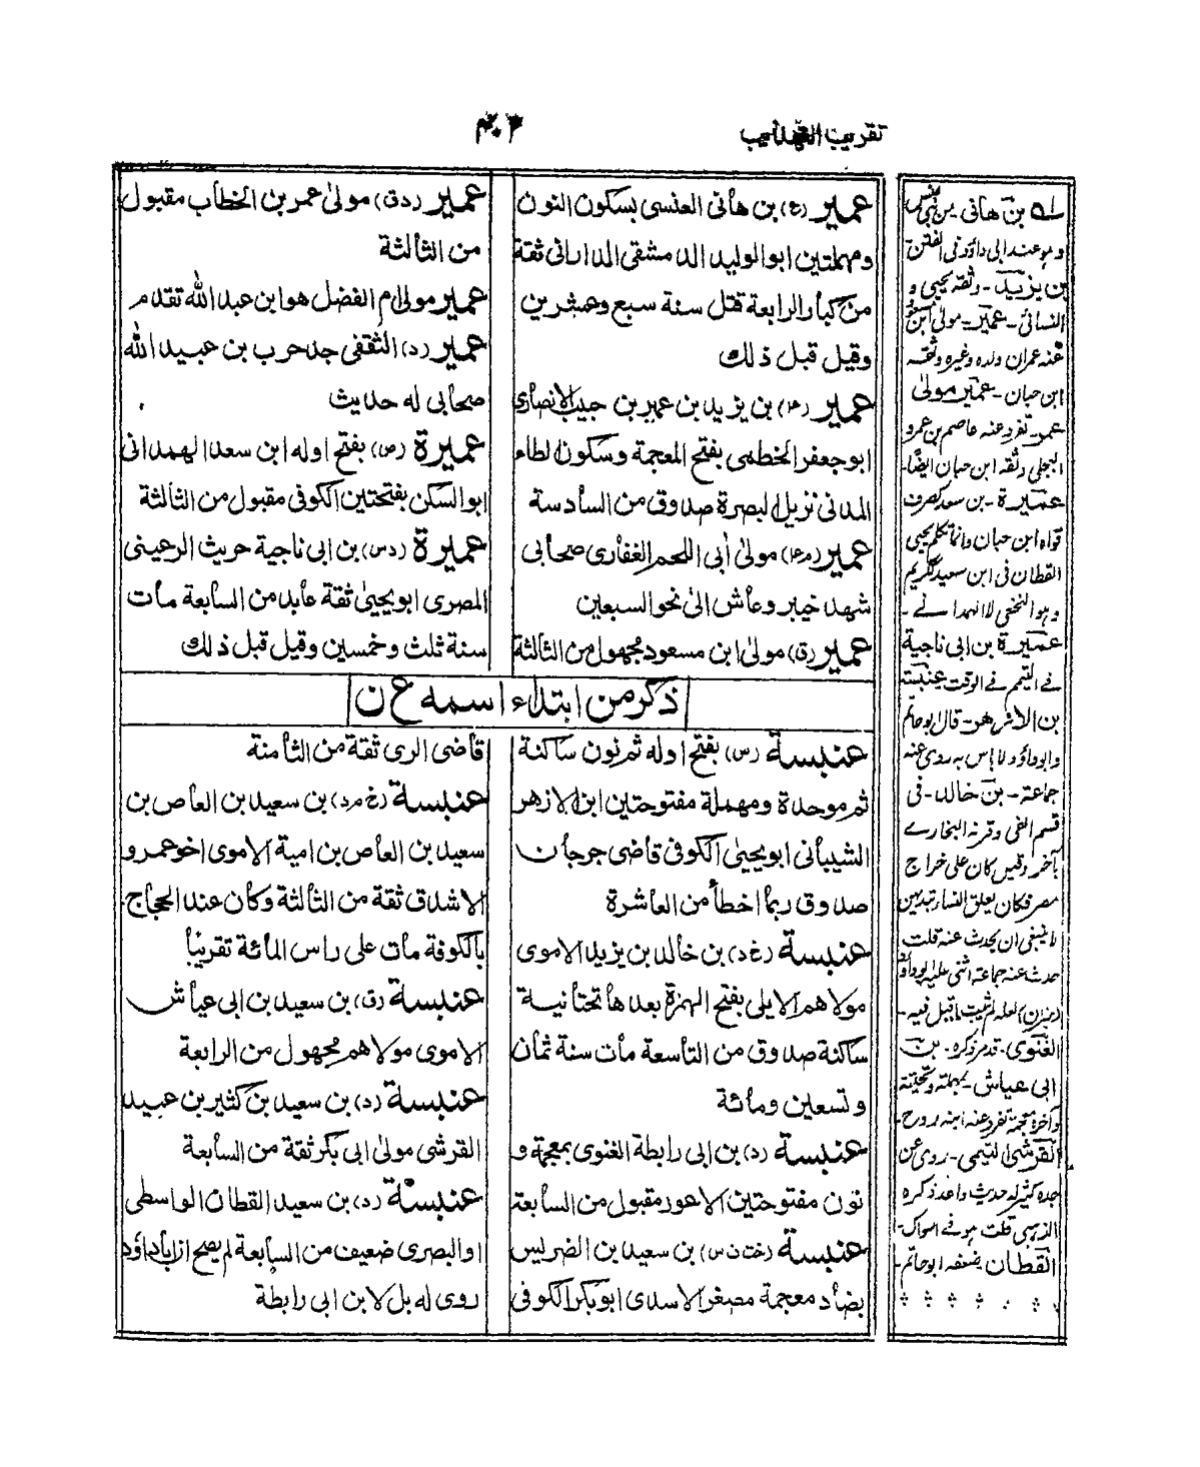 تقريب التهذيب
عمير (ع) بن هانى العنسى بسكون النون
ومهملتين ابو الوليد الدمشقى الدارانى ثقة
من كبار الرابعة قتل سنة سبع وعشرين
وقيل قبل ذلك
عمير (٤) بن يزيد بن عمير بن حبيب الانصارى
ابو جعفر الخطمى بفتح المعجمة وسكون الطاء
المدنى نزيل البصرة صدوق من السادسة
عمير (م٤) مولى أبى اللحم الغفارى صحابى
شهد خيبر وعاش الى نحو السبعين
عمير (ق) مولى ابن مسعود مجهول من الثالثة
عمير (دق) مولى عمر بن الخطاب مقبول
من الثالثة
عمير مولى ام الفضل هو ابن عبد الله تقدم
عمير (د) الثقفى جد حرب بن عبيد الله
صحابى له حديث
عميرة (ص) بفتح اوله ابن سعد الهمدانى
ابو السكن بفتحتين الكوفى مقبول من الثالثة
عميرة (دس) بن ابى ناجية حريث الرعينى
المصرى ابو يحيى ثقة عابد من السابعة مات
سنة ثلث وخمسين وقيل قبل ذلك
ذكر من ابتداء اسمه ع ن
عنبسة (س) بفتح اوله ثم نون ساكنة
ثم موحدة ومهملة مفتوحتين ابن الازهر
الشيبانى ابو يحيى الكوفى قاضى جرجان
صدوق ربما اخطأ من العاشرة
عنبسة (خ د) بن خالد بن يزيد الاموى
مولاهم الايلى بفتح الهمزة بعدها تحتانية
ساكنة صدوق من التاسعة مات سنة ثمان
وتسعين ومائة
عنبسة (د) بن ابى رابطة الغنوى بمعجمة و
نون مفتوحتين الاعور مقبول من السابعة
عنبسة (خت ت س) بن سعيد بن الضريس
بضاد معجمة مصغر الاسدى ابو بكر الكوفى
قاضى الرى ثقة من الثامنة
عنبسة (خ م د) بن سعيد بن العاص بن
سعيد بن العاص بن امية الاموى اخو عمرو
الاشدق ثقة من الثالثة وكان عند الحجاج
بالكوفة مات على راس المائة تقريبا
عنبسة (ق) بن سعيد بن ابى عياش
الاموى مولاهم مجهول من الرابعة
عنبسة (د) بن سعيد بن كثير بن عبيد
القرشى مولى ابى بكر ثقة من السابعة
عنبسة (د) بن سعيد القطان الواسطى
او البصرى ضعيف من السابعة لم يصح ان ابا داؤد
روى له بل لابن ابى رابطة
بن هانى
وهو عند ابى داؤد فى الفتن
بن يزيد - وثقه يحيى و
النسائى - عمير - مولى ابن
عنه عمران ولده وغيره وثقه
ابن حبان - عمير مولى
عمر - تفرد عنه عاصم بن عمرو
البجلى وثقه ابن حبان ايضا -
عميرة - بن سعد
قواه ابن حبان وانما تكلم يحيى
القطان فى ابن سعيد
وهو النخعى لا الهمدانى -
عميرة بن ابى ناجية
فى التيمم فى الوقت عنبسة
بن الازهر - قال ابو حاتم
وابو داؤد لا باس به روى عنه
جماعة - بن خالد - فى
قسم الفى وقرنه البخارى
بآخر وقيل كان على خراج
مصر فكان يعلق النساء بثديهن
لا ينبغى ان يحدث عنه قلت
حدث عنه جماعة اثنى عليه ابو داؤد
لعله لم يثبت ما قيل فيه -
الغنوى - قدم ذكره - بن
ابى عياش - بمهملة وتحتية
وآخره معجمة تفرد عنه ابنه روح -
القرشى التيمى - روى عن
جده كثير له حديث واحد ذكره
الذهبى قلت هو فى السواك -
القطان يضعفه ابو حاتم -